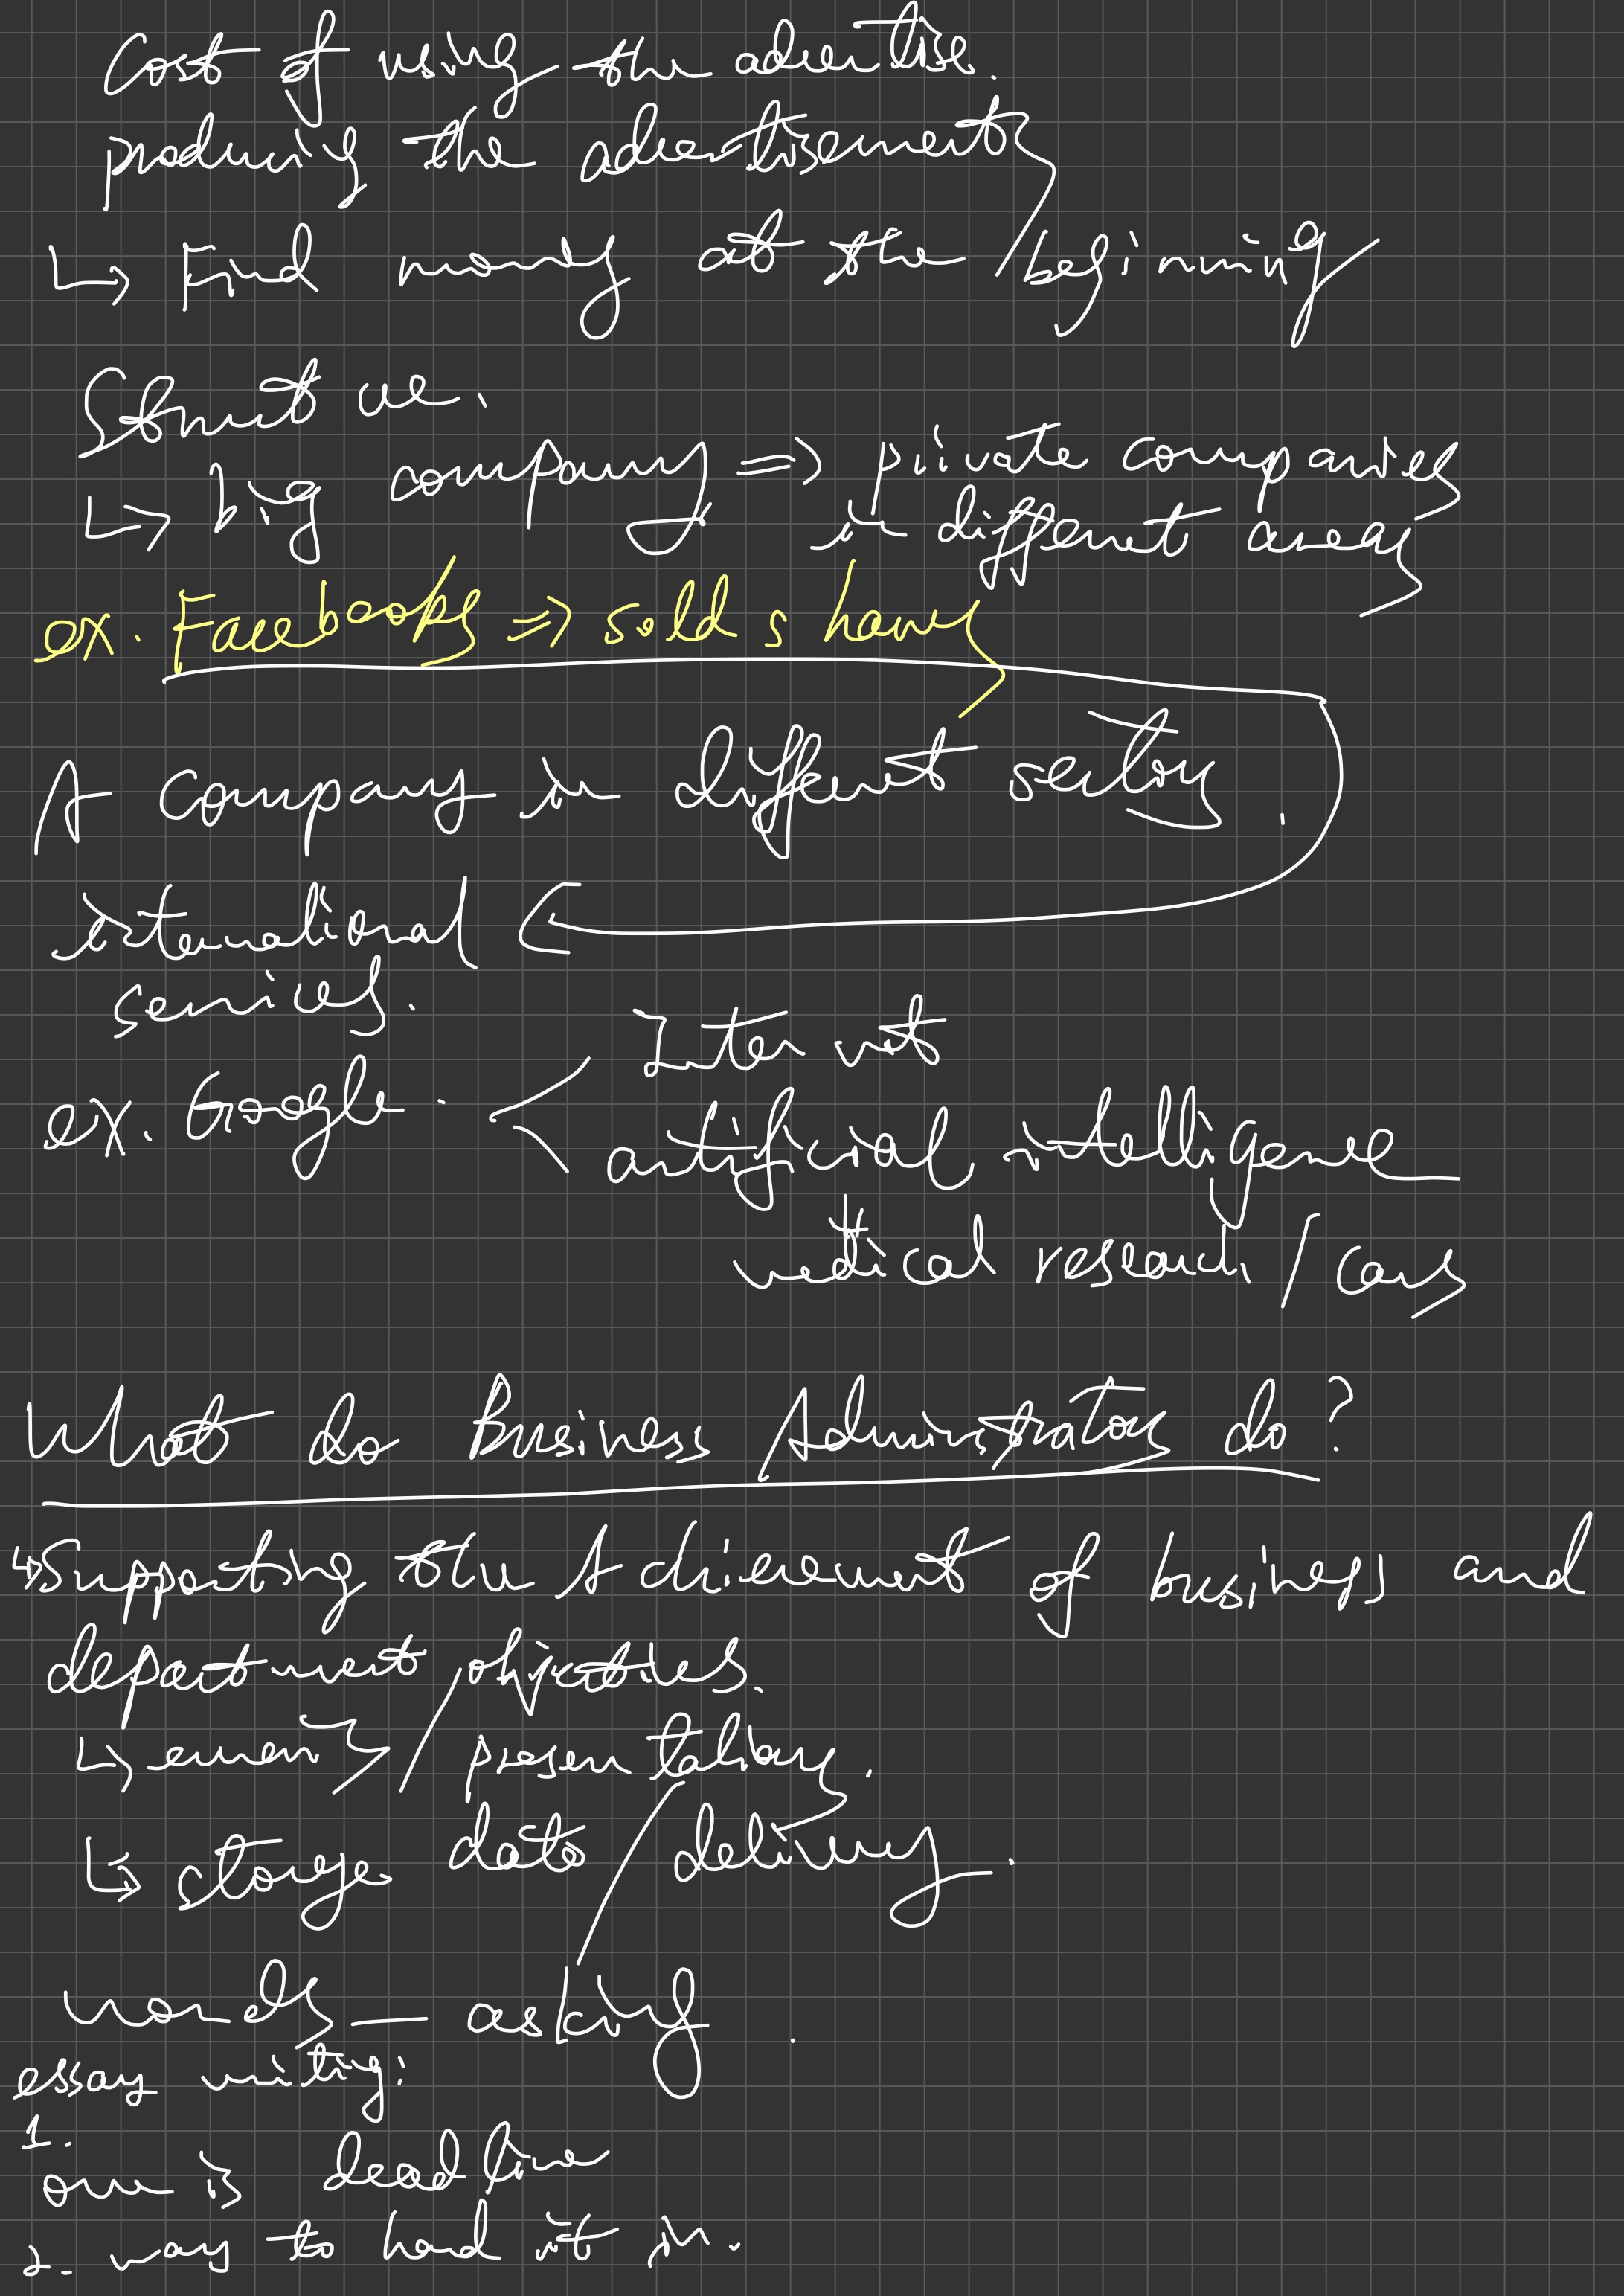 Cost of using the advertise.
producing the advertisements
↳ Find money at the beginning
Structure.
↳ big company ⇒ private companies
in different areas
ex. Facebooks ⇒ sold shares
A company in different sectors.
international ←
services.
Internet
ex. Google. <
artificial intelligence
medical research / cars
What do Business Administrators do?
↳ Supporting the Achievement of business and
department objectives.
↳ events / presentations.
↳ storage data / delivery.
words — asking.
essay writing:
1.
one is deadline
2. way to hand it in.